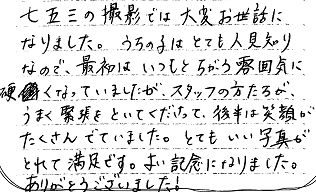 七五三の撮影では大変お世話に
なりました。うちの子はとても人見知り
なので、最初はいつもとちがう雰囲気に
硬くなっていましたが、スタッフの方たちが、
うまく緊張をといてくださって、後半は笑顔が
たくさんでていました。とてもいい写真が
とれて満足です。よい記念になりました。
ありがとうございました!